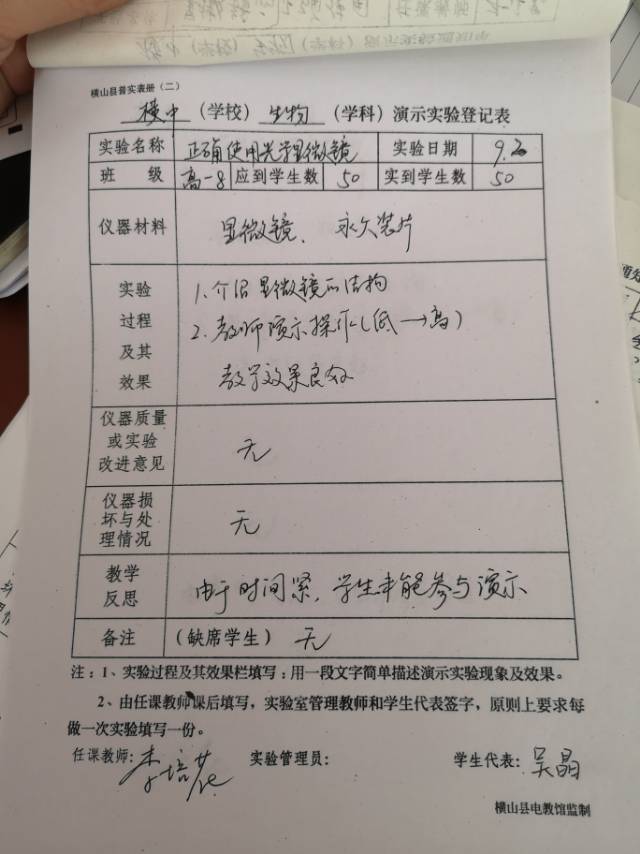 横山县普实表册（二）
横中（学校）生物（学科）演示实验登记表
实验名称 正确使用光学显微镜 实验日期 9.20
班级 高一8 应到学生数 50 实到学生数 50
仪器材料 显微镜、永久装片
实验过程及其效果
1、介绍显微镜的结构
2、教师演示操作（低→高）
教学效果良好
仪器质量或实验改进意见 无
仪器损坏与处理情况 无
教学反思 由于时间紧，学生未能参与演示
备注 （缺席学生） 无
注：1、实验过程及其效果栏填写：用一段文字简单描述演示实验现象及效果。
2、由任课教师课后填写，实验室管理教师和学生代表签字，原则上要求每
做一次实验填写一份。
任课教师：李培花 实验管理员： 学生代表：吴晶
横山县电教馆监制